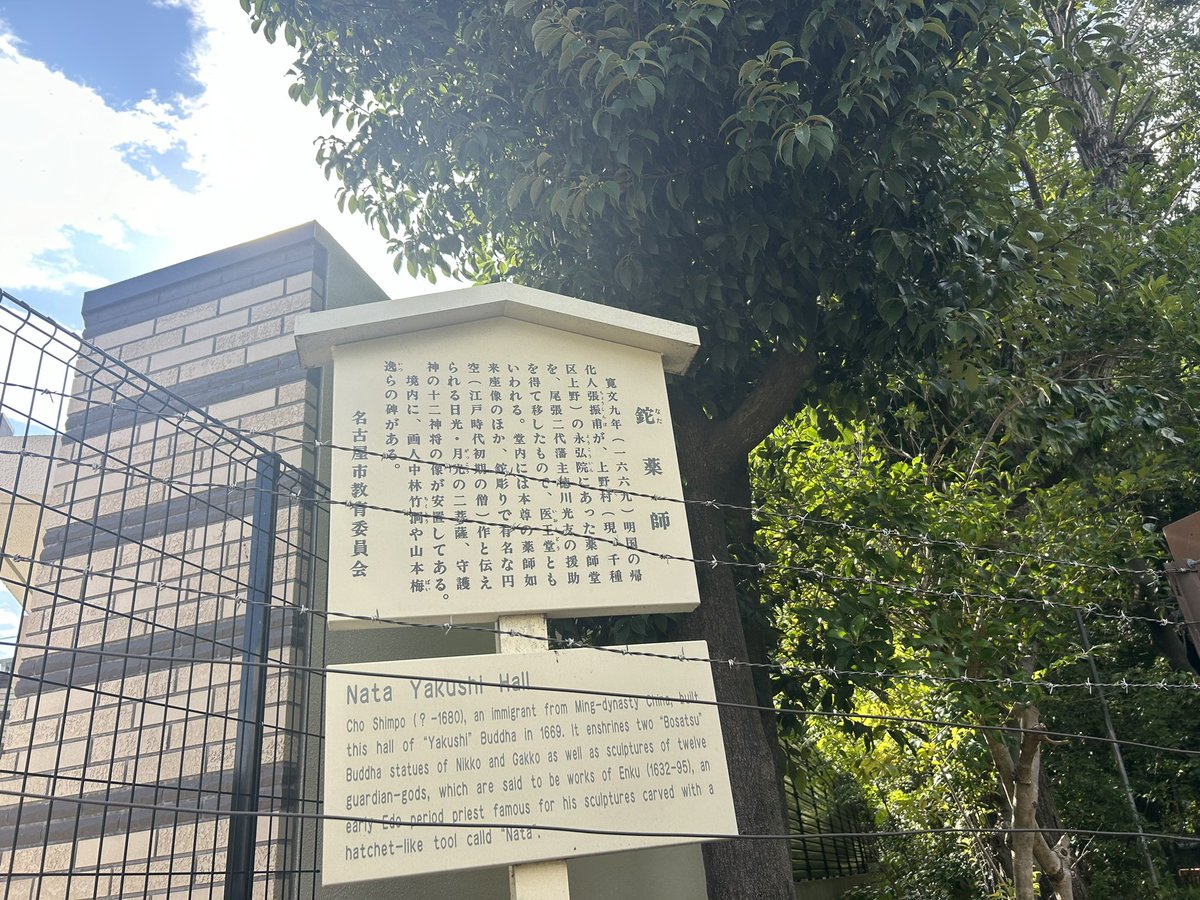 鉈薬師
なた
寛文九年(一六六九)明国の帰
化人張振甫が、上野村(現、千種
区上野)の永弘院にあった薬師堂
を、尾張二代藩主徳川光友の援助
を得て移したもので、医王堂とも
いわれる。堂内には本尊の薬師如
来座像のほか、鉈彫りで有名な円
空(江戸時代初期の僧)作と伝え
られる日光・月光の二菩薩、守護
神の十二神将の像が安置してある。
境内に、画人中林竹洞や山本梅
逸らの碑がある。
名古屋市教育委員会
Nata Yakushi Hall
Cho Shimpo (? -1680), an immigrant from Ming-dynasty China, built
this hall of "Yakushi" Buddha in 1669. It enshrines two "Bosatsu"
Buddha statues of Nikko and Gakko as well as sculptures of twelve
guardian-gods, which are said to be works of Enku (1632-95), an
early Edo period priest famous for his sculptures carved with a
hatchet-like tool calld "Nata".